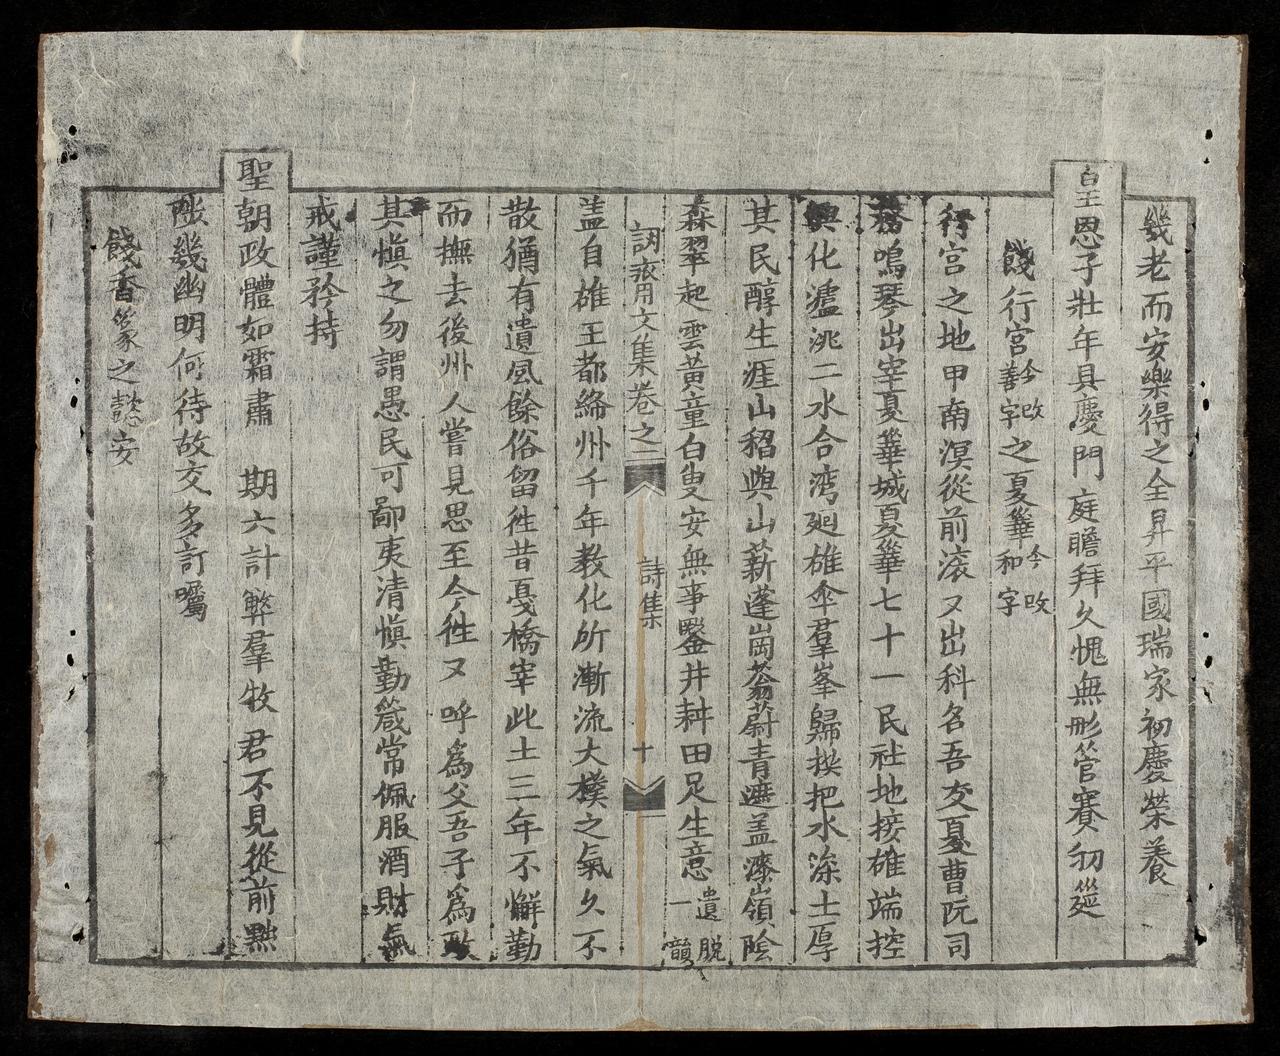 幾老而安樂得之全昇平國瑞家初慶榮養
皇恩子壯年具慶門庭瞻拜久愧無形管賽初筵
餞行宮善字今改之夏華和字今改
行宮之地甲南溟從前滾又出科名吾友憂曹阮司
務鳴琴出宰夏華城夏華七十一民社地接雄端控
興化瀘洮二水合湾廻雄傘羣峯歸揆把水深土厚
其民醇生涯山稻與山薪蓬崗蓊蔚青遮盖漆嶺陰
森翠起雲黃童白叟安無事鑿井耕田足生意遺脫一韻
訒疢用文集卷之二 詩集 十
盖自雄王都絳州千年教化所漸流大樸之氣久不
散猶有遺風餘俗留徃昔戞橋宰此土三年不懈勤
而撫去後州人嘗見思至今徃又呼爲父吾子爲政
其慎之勿謂愚民可鄙夷清慎勤箴常佩服酒財氣
戒謹矜持
聖朝政體如霜肅 期六計弊羣牧君不見從前黜
陟幾幽明何待故交多訂囑
餞香篆之懿安